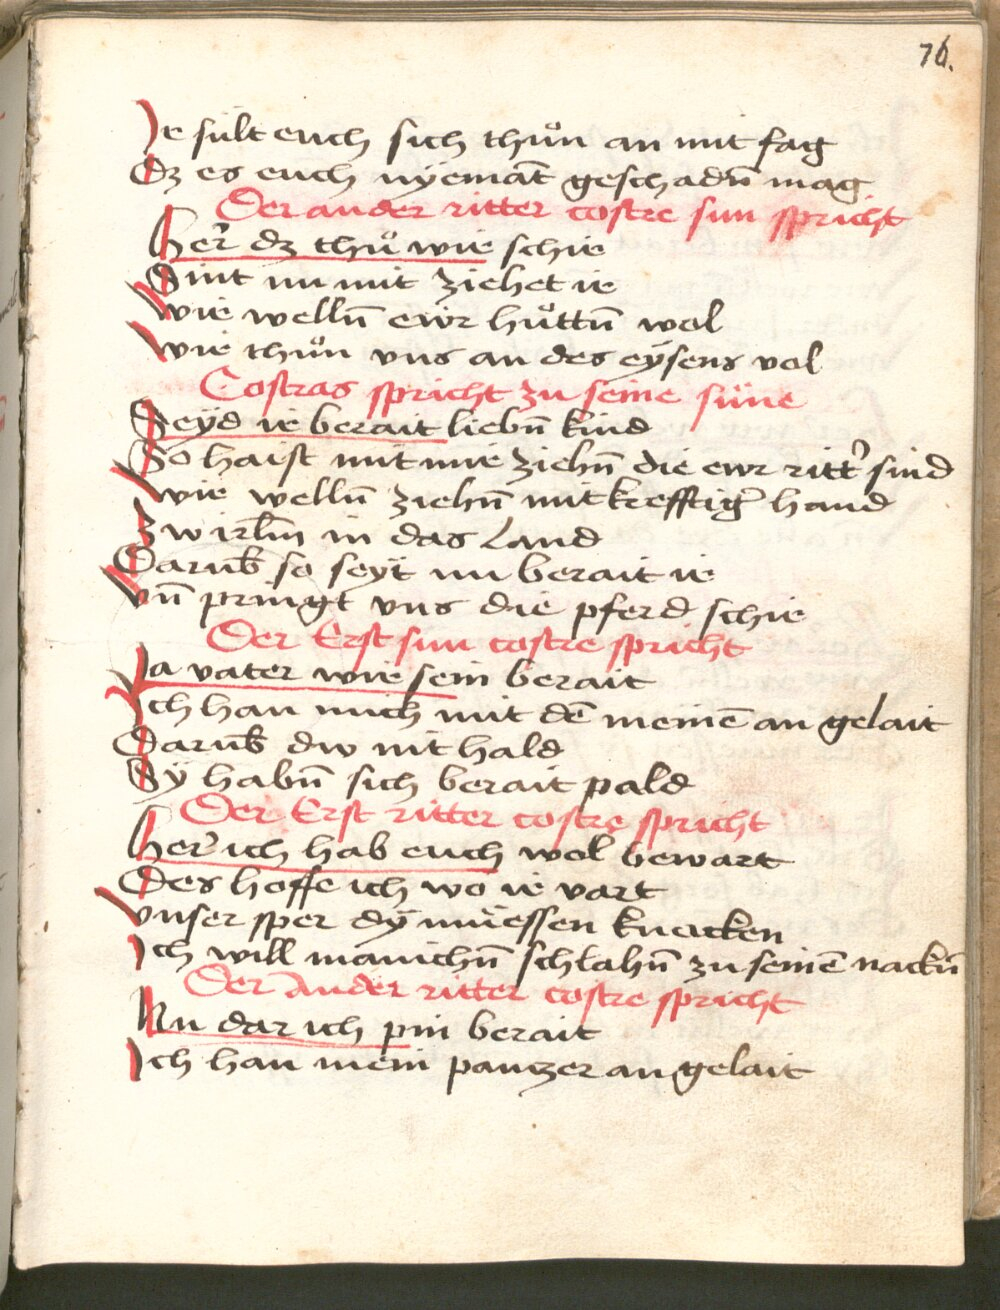 76.
Ir sült euch sich thuͦn an mit fag
Dz es euch nyemāt geschadn̄ mag
Der ander ritter costre sun spricht
Her̄ dz thuͦ wir schir
Sint nu mit ziehet ir
Wir welln̄ ewr huͤttn̄ wol
Wir thuͦn vns an des eysens vol
Costras spricht zu seine süne
Seyd ir berait liebn̄ kind
So haist mit mir ziehn̄ die ewr ritt᷑ sind
Wir welln̄ ziehn̄ mit krefftig᷑ hand
Zwirl̄in in das Land
Darūb so seyt nu berait ir
Vn̄ pringt vns die pferd schir
Der Erst sun costre spricht
Ja vater wir sein berait
Ich han mich mit dē meinē an gelait
Darūb diw nit hald
Sy habn̄ sich berait pald
Der Erst ritter costre spricht
Her̄ ich hab euch wol bewart
Des hoffe ich wo ir vart
Vnser sper dy müessen knacken
Ich will manichn̄ schlahn̄ zu seinē nackn̄
Der Ander ritter costre spricht
Nu dar ich pin berait
Ich han mein panzer an gelait